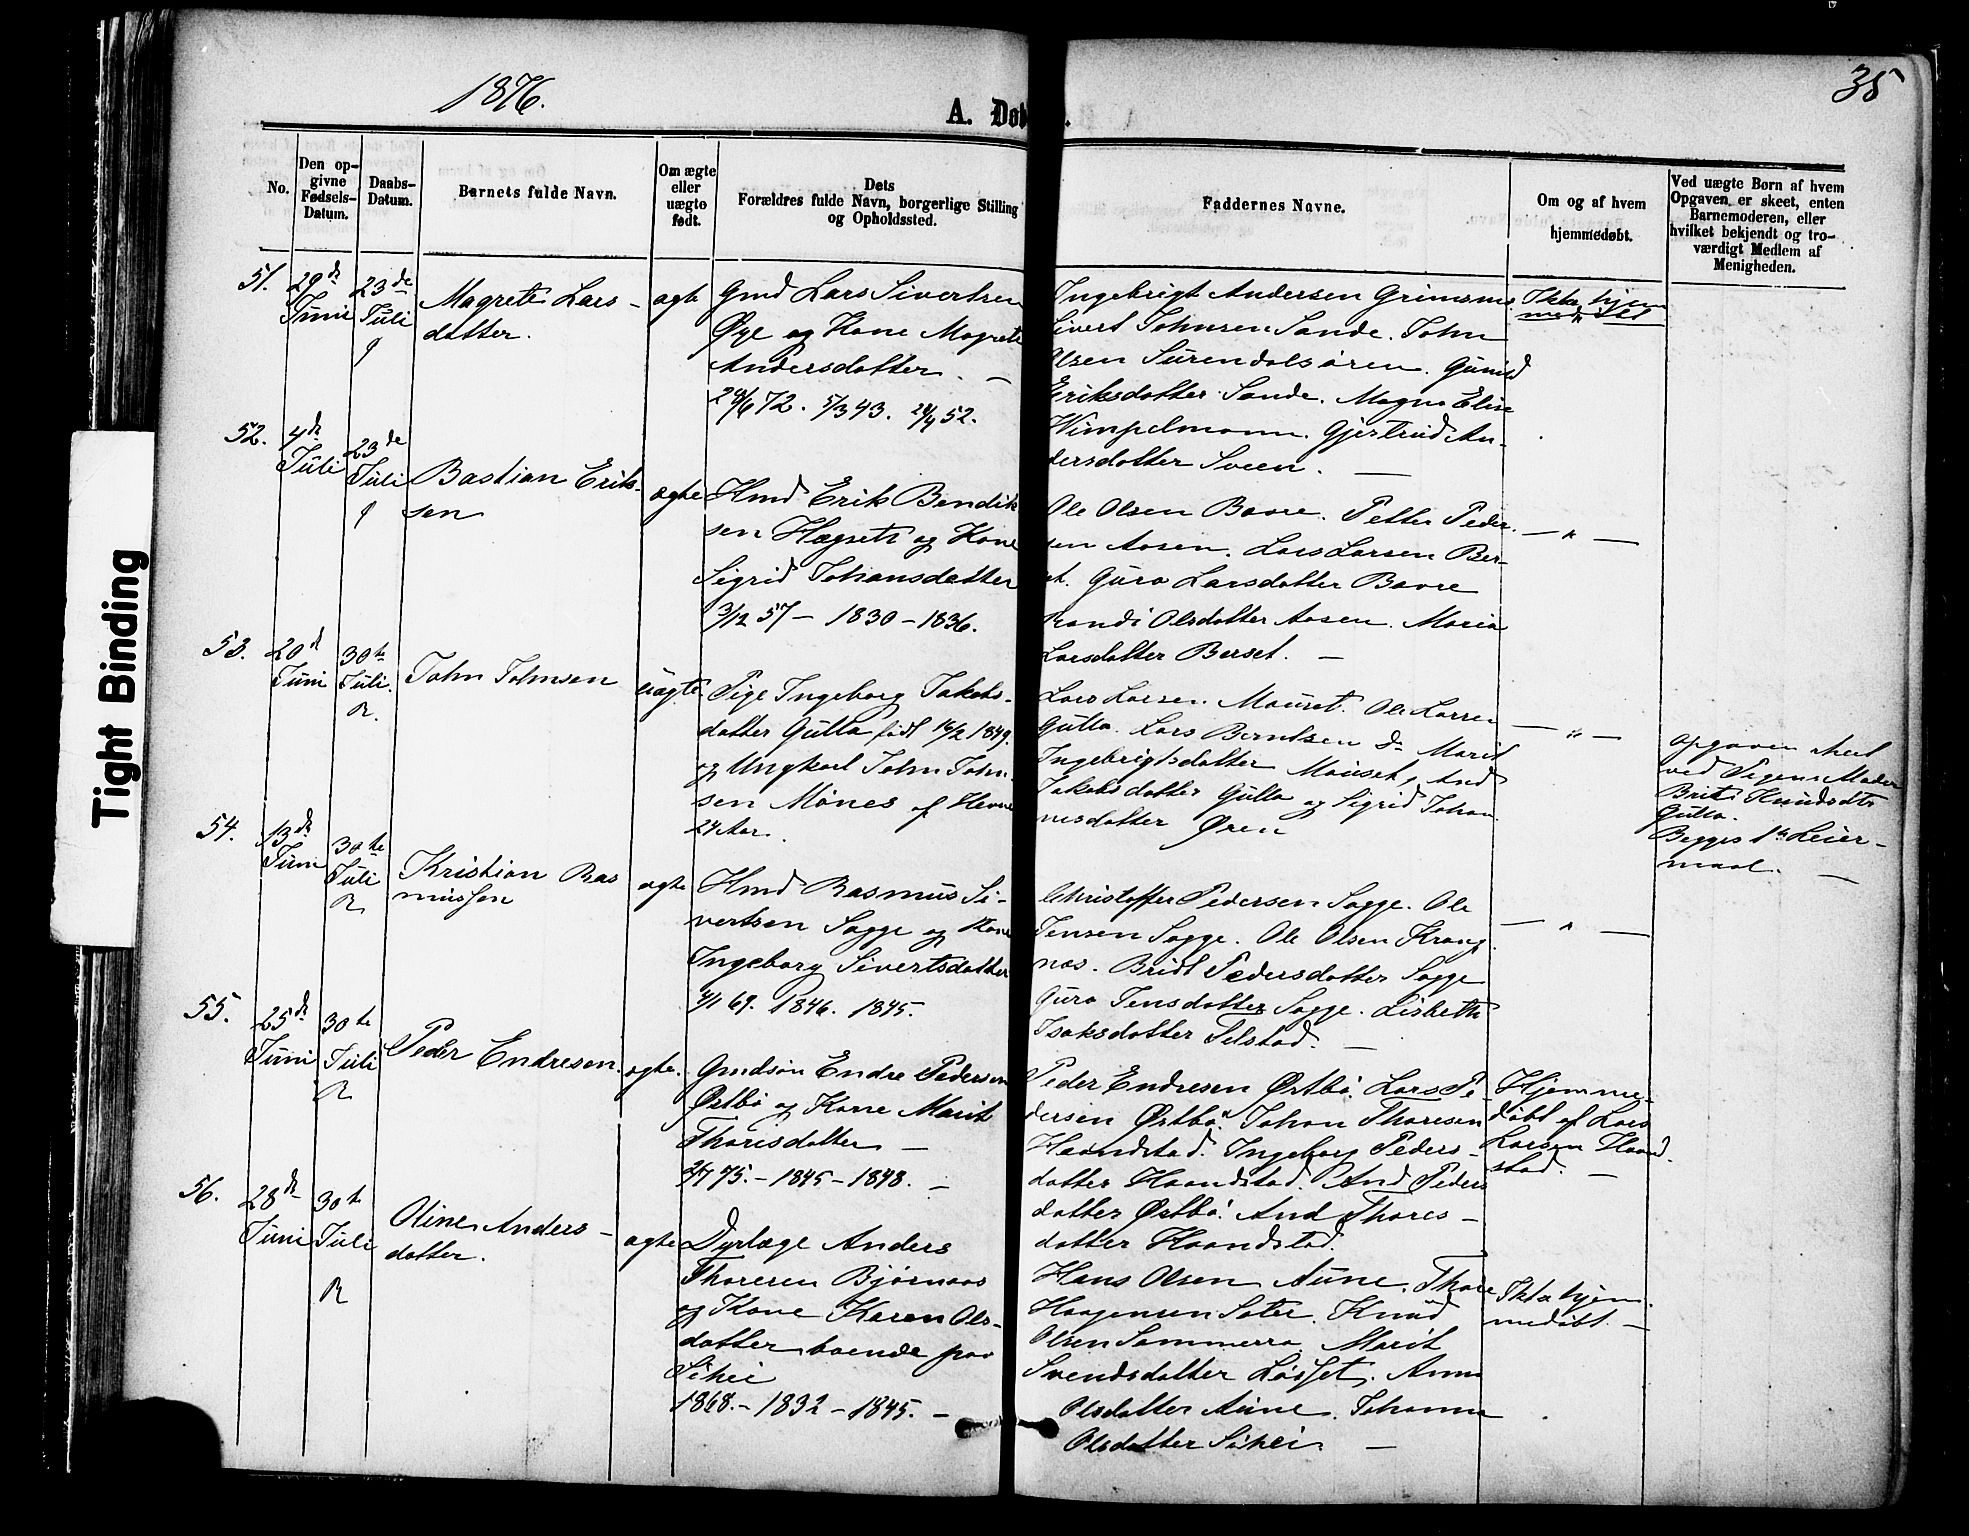 1876.
A. Døb
35
No.
Den op-
givne
Fødsels-
Datum.
Daabs-
Datum.
Barnets fulde Navn.
Om ægte
eller
uægte
født.
Dets
Forældres fulde Navn, borgerlige Stilling
og Opholdssted.
Faddernes Navne.
Om og af hvem
hjemmedøbt.
Ved uægte Børn af hvem
Opgaven er skeet, enten
Barnemoderen, eller
hvilket bekjendt og tro-
værdigt Medlem af
Menigheden.
51.
29de
Juni
23de
Juli
Magrete Lars-
datter.
ægte
Gmd Lars Sivertsen
Øye og Kone Magrete
Andersdatter. —
5/3 43.
Ingebrigt Andersen
Sivert Johnsen Sande. John
Olsen Surendalsøren.
Eriksdatter Sande. Magna Elise
Wimpelmann. Gjertrud An-
dersdatter Sveen. —
52.
4de
Juli
23de
Juli
Bastian Erik-
sen
ægte
Hmd Erik Bendik
sen og Kone
Sigrid Johansdatter
3/12 57 — 1830 — 1836.
Ole Olsen Bavre. Petter Peder-
sen Aasen. Lars Larsen Ber-
set. Guro Larsdatter Bavre
Randi Olsdatter Aasen. Maria
Larsdatter Berset. —
— " —
53.
20de
Juni
30te
Juli.
R.
John Johnsen
uægte
Pige Ingeborg Jakobs-
datter Gulla født 1849.
og Ungkarl John John-
sen Mones af Hevne
24 Aar.
Lars Larsen Mauset. Ole Larsen
Gulla. Lars Berntsen do Marit
Ingebrigtsdatter Mauset, And
Jakobsdatter Gulla og Sigrid Johan
nesdatter Øren
— " —
opgaven skeet
ved Pigens Moder
Brit Knudsdtr
Gulla.
Begges 1ste Leier-
maal. —
54.
13de
Juni
30te
Juli
R
Kristian Ras
mussen
ægte
Hmd Rasmus Si-
vertsen Sogge og Kone
Ingeborg Sivertsdatter
69. 1846. 1845.
Christoffer Pedersen Sogge. Ole
Jensen Sogge. Ole Olsen Krang
næs. Bridt Pedersdatter Sogge
Guro Jensdatter Sogge. Lisbeth
Isaksdatter Telstad. —
— " —
55.
25de
Juni
30te
Juli
R
Peder Endresen.
ægte.
Gmdsøn Endre Pedersen
Østbø og Kone Marit
Thoresdatter —
75. — 1845 — 1848. —
Peder Endresen Østbø. Lars Pe-
dersen Østbø. Johan Thoresen
Haandstad. Ingeborg Peders-
datter Haandstad. And Peders
datter Østbø. And Thores-
datter Haandstad.
Hjemme-
døbt af Lars
Larsen Haand-
stad. —
56.
28de
Juni
30te
Juli
R
Oline Anders-
datter.
ægte
Dyrlæge Anders
Thoresen Bjørnaas
og Kone Karen Ols-
datter boende paa
1868. — 1832 — 1845. —
Hans Olsen Aune. Thore
Haagensen Sæter. Knud
Olsen Sammerra. Marit
Svendsdatter Løsset. Anne
Olsdatter Aune. Johanna
Olsdatter —
Ikke hjem-
medøbt. —
Tight Binding